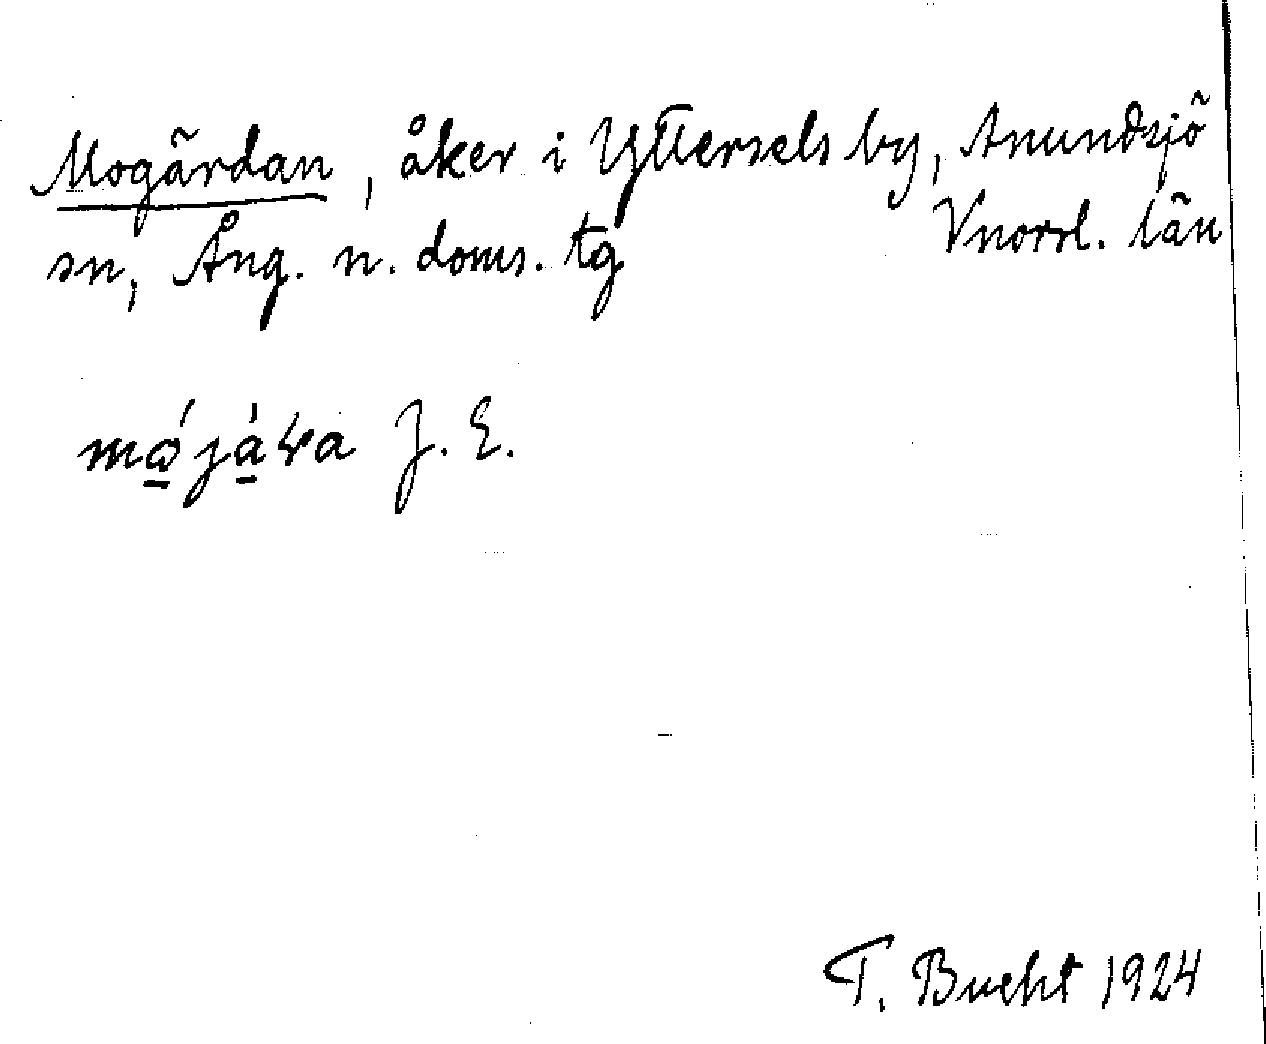 Mogärdan, åker i Yttersels by, Anundsjö
sn, Ång. n. doms. tg Vnorrl. län
J. E.
T. Bucht 1924